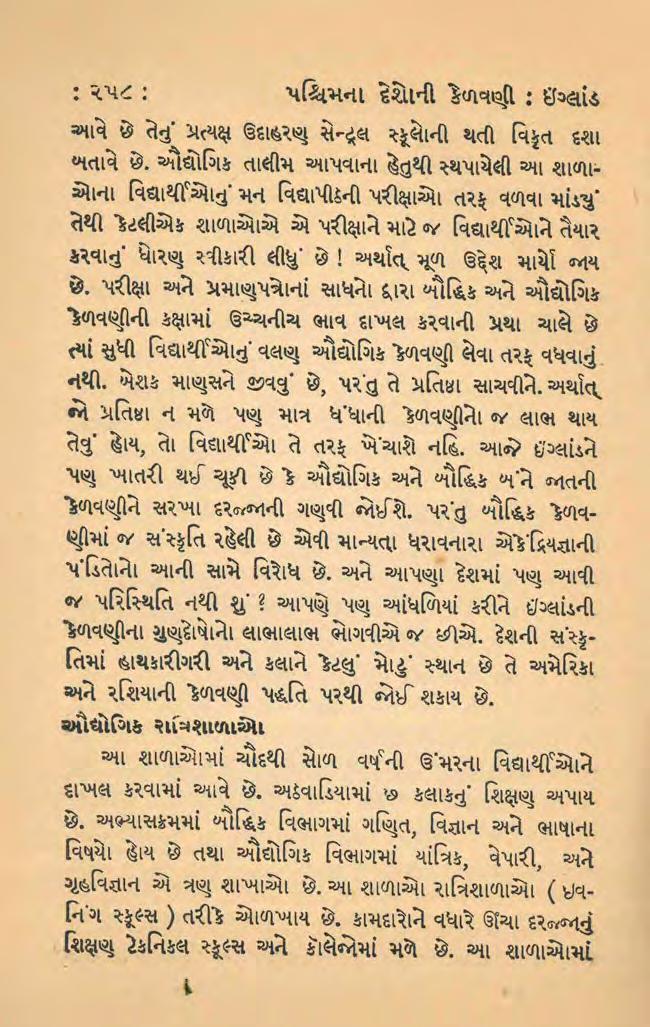 : ૨૫૮ : પશ્ચિમના દેશોની કેળવણી : ઇંગ્લાંડ
આવે છે તેનું પ્રત્યક્ષ ઉદાહરણ સેન્ટ્રલ સ્કૂલોની થતી વિકૃત દશા
બતાવે છે. ઔદ્યોગિક તાલીમ આપવાના હેતુથી સ્થપાયેલી આ શાળા-
ઓના વિદ્યાર્થીઓનું મન વિદ્યાપીઠની પરીક્ષાઓ તરફ વળવા માંડ્યું
તેથી કેટલીએક શાળાઓએ એ પરીક્ષાને માટે જ વિદ્યાર્થીઓને તૈયાર
કરવાનું ધોરણ સ્વીકારી લીધું છે ! અર્થાત્ મૂળ ઉદ્દેશ માર્યો જાય
છે. પરીક્ષા અને પ્રમાણપત્રોનાં સાધનો દ્વારા બૌદ્ધિક અને ઔદ્યોગિક
કેળવણીની કક્ષામાં ઉચ્ચનીચ ભાવ દાખલ કરવાની પ્રથા ચાલે છે
ત્યાં સુધી વિદ્યાર્થીઓનું વલણ ઔદ્યોગિક કેળવણી લેવા તરફ વધવાનું
નથી. બેશક માણસને જીવવું છે, પરંતુ તે પ્રતિષ્ઠા સાચવીને. અર્થાત્
જો પ્રતિષ્ઠા ન મળે પણ માત્ર ધંધાની કેળવણીનો જ લાભ થાય
તેવું હોય, તો વિદ્યાર્થીઓ તે તરફ ખેંચાશે નહિ. આજે ઇંગ્લાંડને
પણ ખાતરી થઈ ચૂકી છે કે ઔદ્યોગિક અને બૌદ્ધિક બંને જાતની
કેળવણીને સરખા દરજ્જાની ગણવી જોઈશે. પરંતુ બૌદ્ધિક કેળવ-
ણીમાં જ સંસ્કૃતિ રહેલી છે એવી માન્યતા ધરાવનારા એકેંદ્રિયજ્ઞાની
પંડિતોનો આની સામે વિરોધ છે. અને આપણા દેશમાં પણ આવી
જ પરિસ્થિતિ નથી શું ? આપણે પણ આંધળિયાં કરીને ઇંગ્લાંડની
કેળવણીના ગુણદોષોનો લાભાલાભ ભોગવીએ જ છીએ. દેશની સંસ્કૃ-
તિમાં હાથકારીગરી અને કલાને કેટલું મોટું સ્થાન છે તે અમેરિકા
અને રશિયાની કેળવણી પદ્ધતિ પરથી જોઈ શકાય છે.
ઔદ્યોગિક રાત્રિશાળાઓ
આ શાળાઓમાં ચૌદથી સોળ વર્ષની ઉંમરના વિદ્યાર્થીઓને
દાખલ કરવામાં આવે છે. અઠવાડિયામાં છ કલાકનું શિક્ષણ અપાય
છે. અભ્યાસક્રમમાં બૌદ્ધિક વિભાગમાં ગણિત, વિજ્ઞાન અને ભાષાના
વિષયો હોય છે તથા ઔદ્યોગિક વિભાગમાં યાંત્રિક, વેપારી, અને
ગૃહવિજ્ઞાન એ ત્રણ શાખાઓ છે. આ શાળાઓ રાત્રિશાળાઓ ( ઇવ-
નિંગ સ્કૂલ્સ ) તરીકે ઓળખાય છે. કામદારોને વધારે ઊંચા દરજ્જાનું
શિક્ષણ ટેકનિકલ સ્કૂલ્સ અને કૉલેજોમાં મળે છે. આ શાળાઓમાં